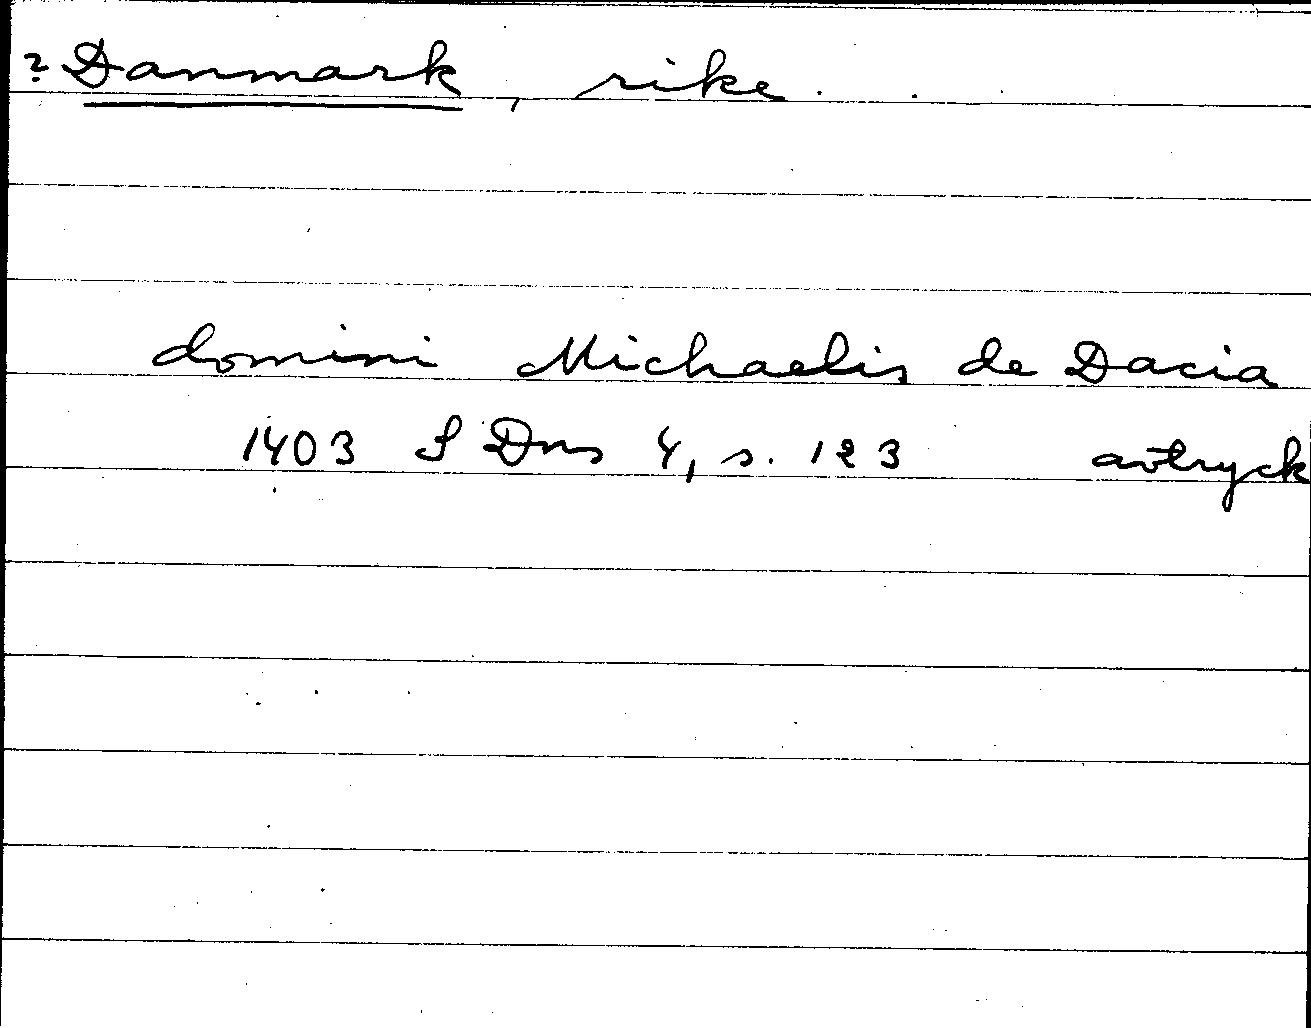 ? Danmark, rike.
domini Michaelis de Dacia
1403 S Dns 4, s. 123 avtryck